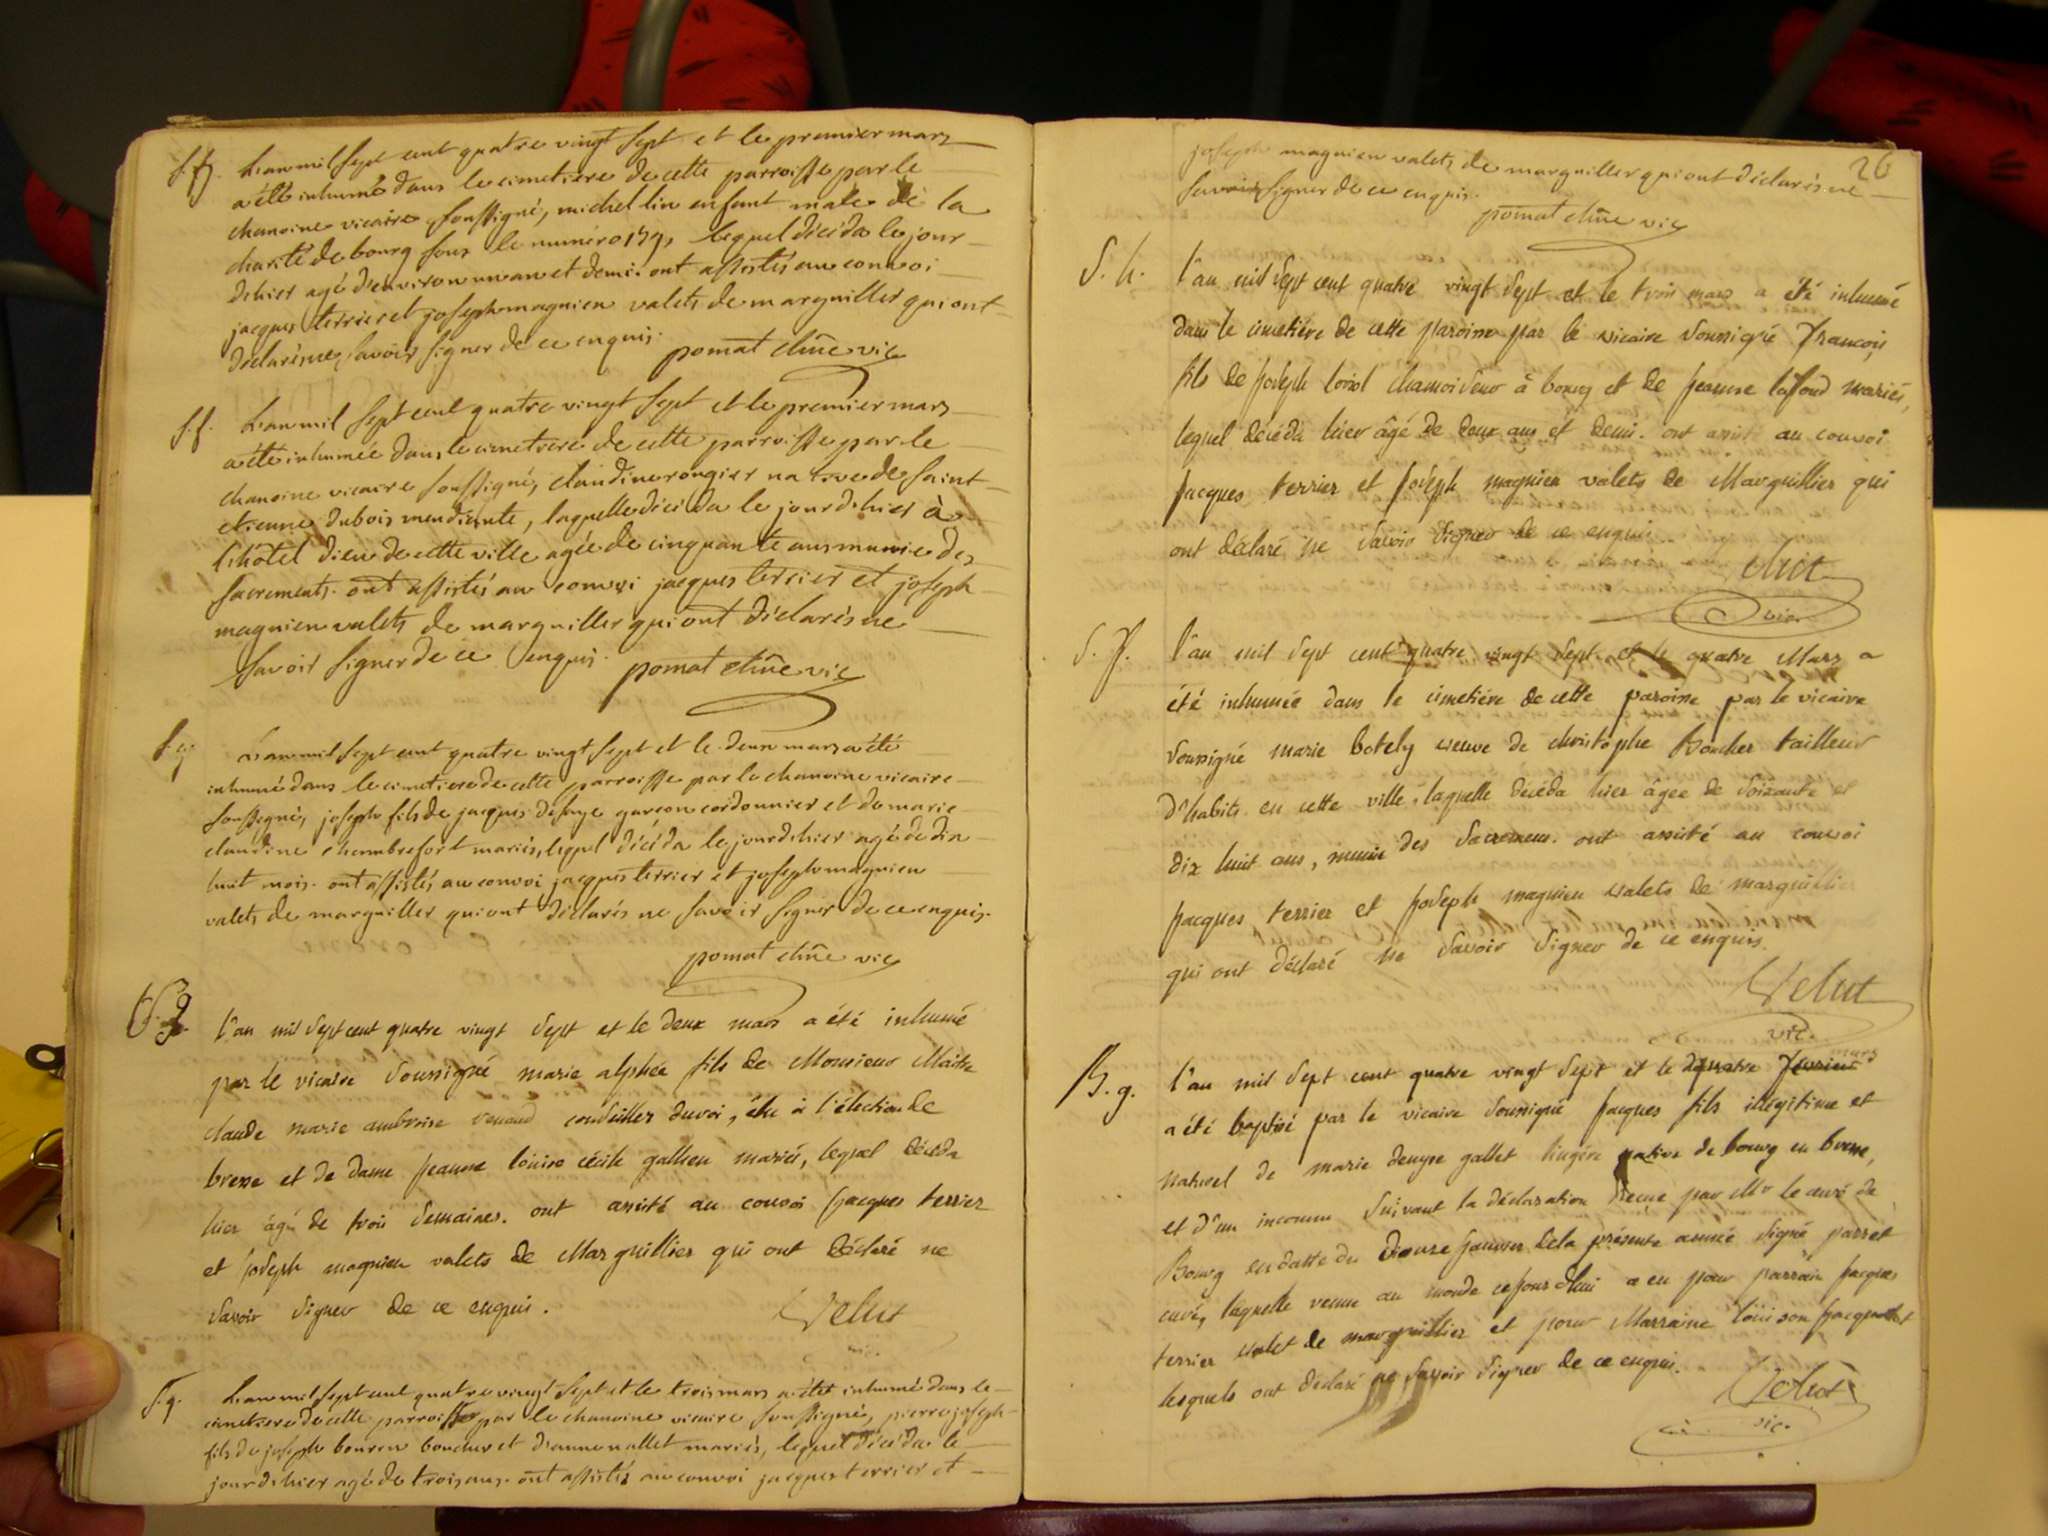 S.h. L'an mil sept cent quatre vingt sept et le premier mars
a été inhumé dans le cimetiere de cette parroisse par le
chanoine vicaire soussigné, michel lin enfant male de la
charité de bourg sous le numéro lequel décéda le jour
d'hier agé d'environ un an et demi. ont assistés au convoi
jacques terrier et joseph magnien valets de marguiller qui ont
déclarés ne savoir signer de ce enquis. pomat chne vic
S.f. L'an mil sept cent quatre vingt sept et le premier mars
a été inhumée dans le cimetiere de cette parroisse par le
chanoine vicaire soussigné, claudine rougier native de saint
etienne dubois mendiante, laquelle décéda le jour d'hier à
l'hôtel dieu de cette ville agée de cinquante ans munie des
sacrements. ont assistés au convoi jacques terrier et joseph
magnien valets de marguiller qui ont déclarés ne
savoir signer de ce enquis. pomat chne vic
S.g. L'an mil sept cent quatre vingt sept et le deux mars a été
inhumé dans le cimetiere de cette parroisse par le chanoine vicaire
soussigné, joseph fils de jacques defaye garcon cordonnier et de marie
claudine chambrefort mariés, lequel décéda le jour d'hier agé de dix
huit mois. ont assistés au convoi jacques terrier et joseph magnien
valets de marguiller qui ont déclarés ne savoir signer de ce enquis.
pomat chne vic
S.g. l'an mil sept cent quatre vingt sept et le deux mars a été inhumé
par le vicaire soussigné marie alphée fils de Monsieur Maitre
claude marie ambroise venaud conseiller du roi, élu à l'élection de
bresse et de dame jeanne louise cécile gallien mariés, lequel décéda
hier âgé de trois semaines. ont assisté au convoi jacques terrier
et joseph magnien valets de Marguillier qui ont déclaré ne
savoir signer de ce enquis. Velut
vic.
S.g. L'an mil sept cent quatre vingt sept et le trois mars a été inhumé dans le
cimetiere de cette parroisse par le chanoine vicaire soussigné, pierre joseph
fils de joseph bouvren boucher et d'anne vallet mariés, lequel décéda le
jour d'hier agé de trois ans. ont assistés au convoi jacques terrier et
26
joseph magnien valets de marguiller qui ont déclarés ne
savoir signer de ce enquis.
pomat chne vic
S.h. l'an mil sept cent quatre vingt sept et le trois mars a été inhumé
dans le cimetiére de cette paroisse par le vicaire soussigné françois
fils de joseph loriol chamoiseur à bourg et de jeanne lafond mariés,
lequel décéda hier âgé de deux ans et demi. ont assisté au convoi
jacques terrier et joseph magnien valets de Marguillier qui
ont déclaré ne savoir signer de ce enquis
Velut
vic.
S.f. l'an mil sept cent quatre vingt sept et le quatre Mars a
été inhumée dans le cimetiére de cette paroisse par le vicaire
soussigné marie botely veuve de christophe Boucher tailleur
d'habits en cette ville, laquelle décéda hier âgée de soixante et
dix huit ans, munie des sacremens. ont assisté au convoi
jacques terrier et joseph magnien valets de marguillier
qui ont déclaré ne savoir signer de ce enquis.
Velut
vic.
B.g. l'an mil sept cent quatre vingt sept et le quatre fevrier mars
a été baptisé par le vicaire soussigné jacques fils illégitime et
naturel de marie denyse gallet lingére native de bourg en bresse,
et d'un inconnu suivant la déclaration reçue par Mr le curé de
Bourg en datte du douze janvier dela présente année signé parret
curé, laquelle venue au monde cejourd'hui a eu pour parrain jacques
terrier valet de marguillier et pour Marraine louison jacquemet
lesquels ont déclaré ne savoir signer de ce enquis.
Velut
vic.